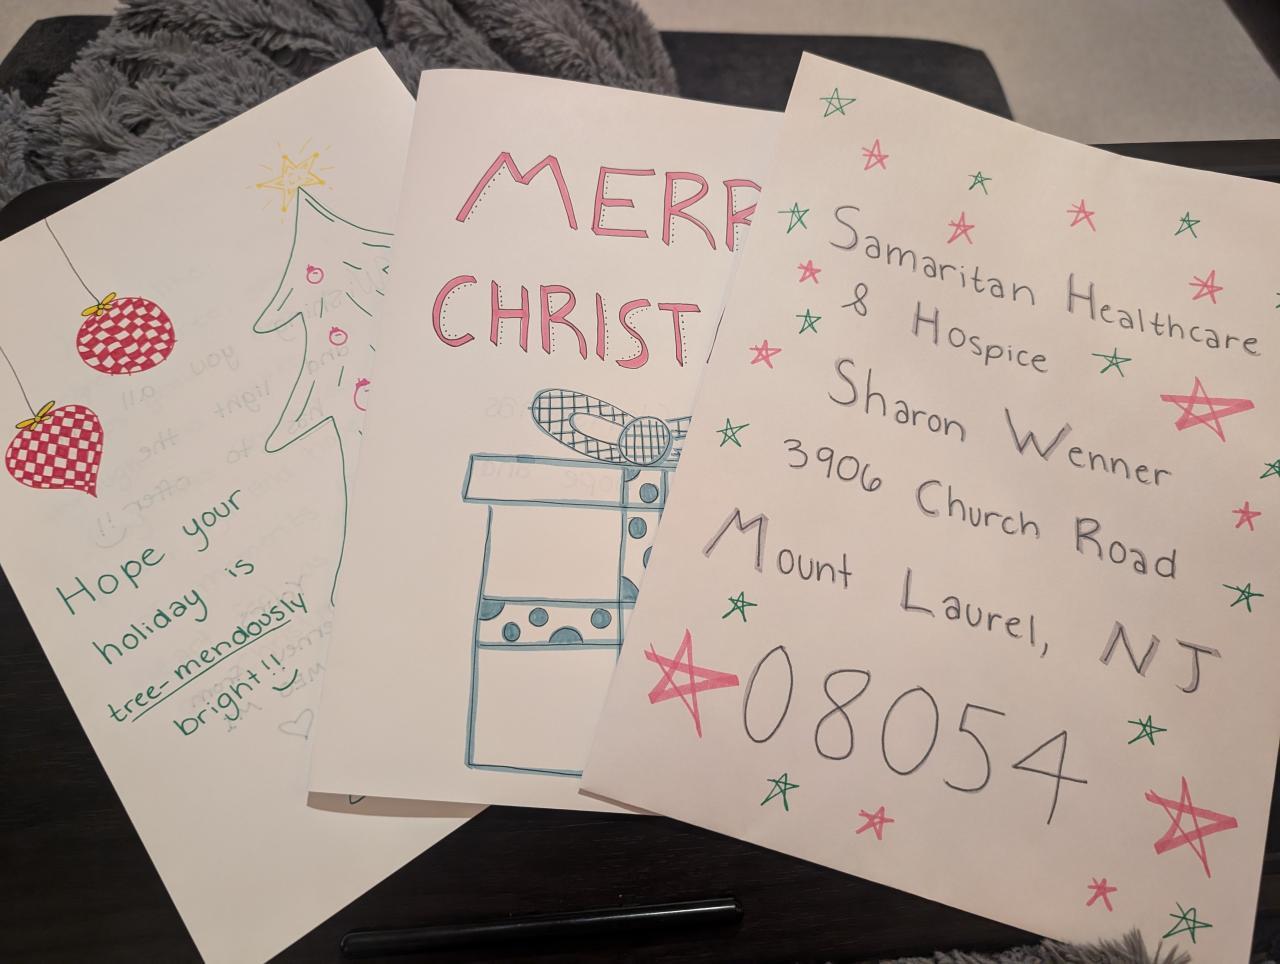 Hope your
holiday is
tree-mendously
bright!!
MERR
CHRIST
Samaritan Healthcare
& Hospice
Sharon Wenner
3906 Church Road
Mount Laurel, NJ
08054